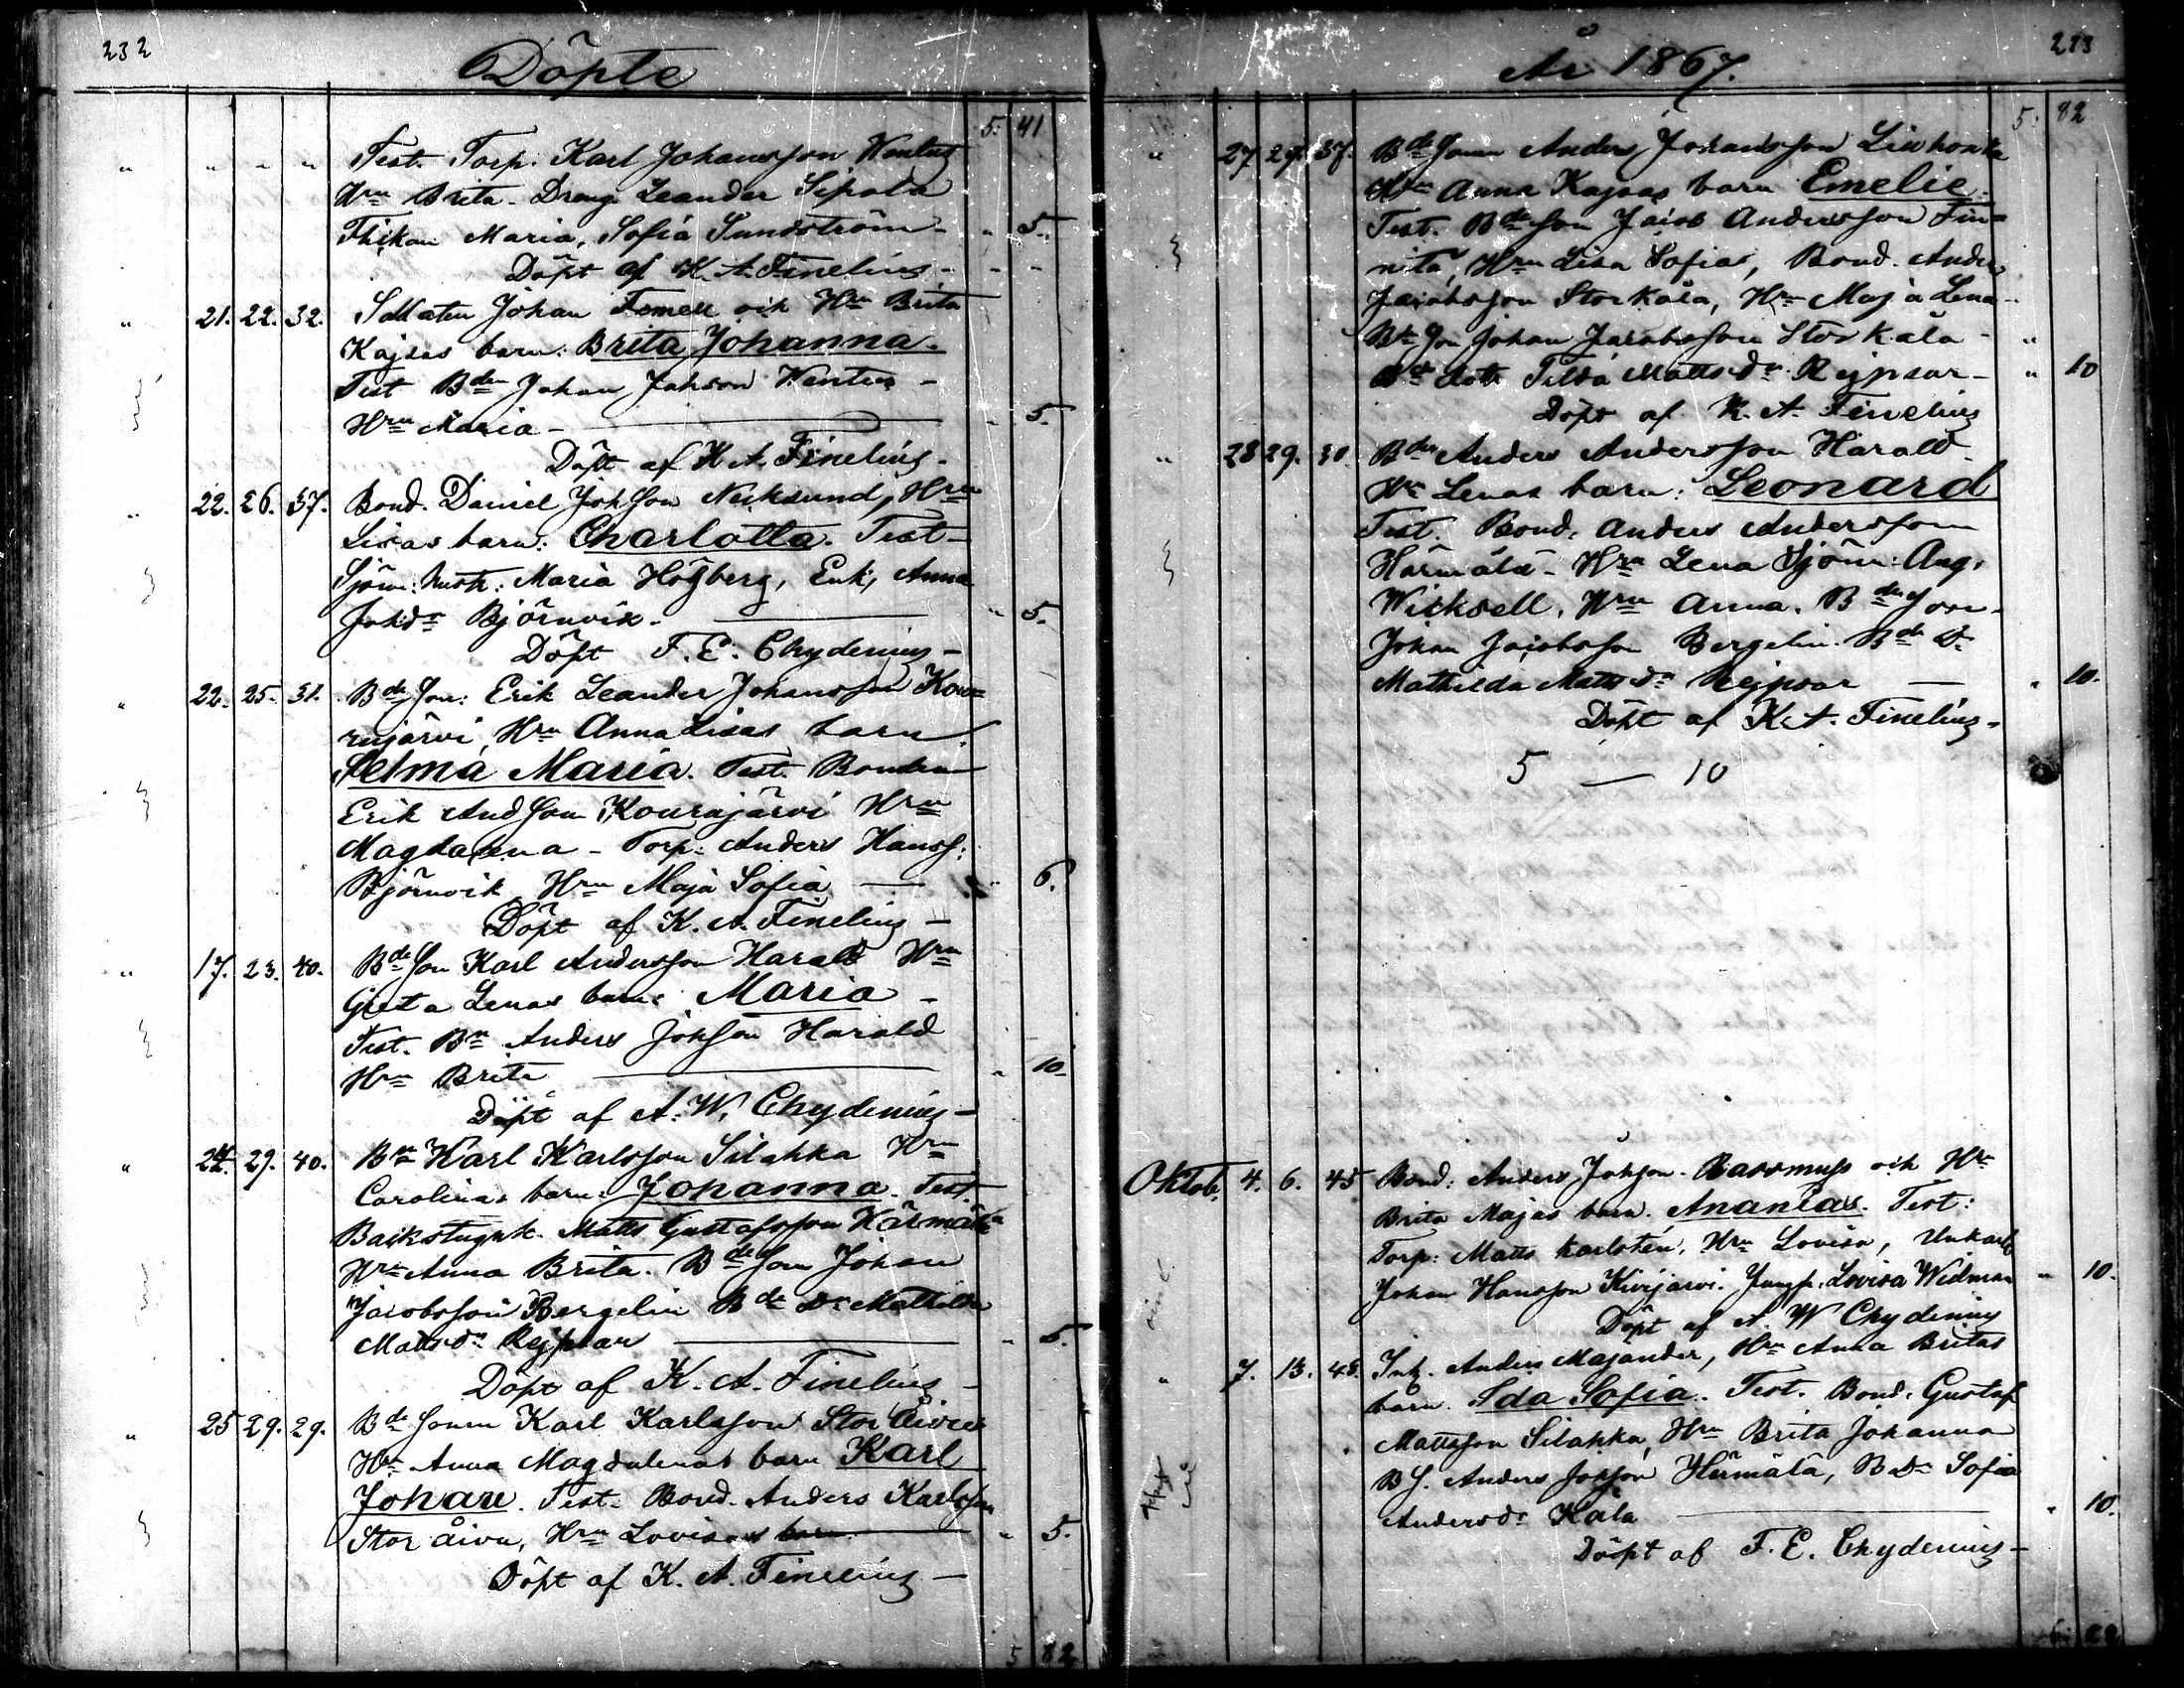 232
Döpte
5. 41
" " " " Test. Torp. Karl Johansson Wentus
Hrn Brita. Dräng Leander Sipola
Flickan Maria, Sofia Sundström - " 5.
Döpt af K. A. Finelius -
" 21. 22. 32. Soldaten Johan Fomell och Hrn Brita
Kajsas barn: Brita Johanna.
Test Bden Johan Johsson Wentus -
Hrn Maria - " 5.
Döpt af K. A. Finelius -
" 22. 26. 37. Bond. Daniel Johsson Necksund, Hrn
Lisas barn: Charlotta. Test -
Sjöm. hust: Maria Högberg, Enk, Anna
Johdr Björnvik. " 5.
Döpt F. E. Chydenius -
" 22. 25. 31. Bde Son: Erik Leander Johansson Kou=
rajärvi, Hrn Anna Lisas barn
Selma Maria. Test. Bonden
Erik Andsson Kourajärvi Hrn
Magdalena - Torp. Anders Hanss:
Björnvik Hrn Maja Sofia " 6.
Döpt af K. A. Finelius -
" 17. 23. 40. Bde Son Karl Andersson Harald Hrn
Greta Lenas barn: Maria -
Test. Bn Anders Johsson Harald
Hrn Brita " 10.
Döpt af A. W. Chydenius -
" 24. 29. 40. Bn Karl Karlsson Silahka Hrn
Carolinas barn: Johanna. Test.
Backstuguk. Matts Gustafsson Härmälä
Hrn Anna Brita. Bde Son Johan
Jacobsson Bergelin Bde Dr Mathilda
Mattsdr Rejpsar " 5.
Döpt af K. A. Finelius -
" 25 29. 29. Bde Sonen Karl Karlsson Stor Åivo
Hrn Anna Magdalenas barn Karl
Johan. Test. Bond. Anders Karlsson
Stor åivo, Hrn Lovisas barn " 5.
Döpt af K. A. Finelius -
5 82
År 1867.
233
5. 82
" 27 29. 37. Bde Sonen Anders Johansson Liuhonka
Hrn Anna Kajsas barn Emelie.
Test. Bde Son Jacob Andersson Fin=
nilä, Hrn Lisa Sofias, Bond. Anders
Jacobsson Storkåla, Hrn Maja Lena -
Bde Son Johan Jacobsson Storkåla - "
Bde dott Tilda Mattsdr Rejpsar - " 10
Döpt af K. A. Finelius
" 28 29. 30 Bden Anders Andersson Harald
Hrn Lenas barn: Leonard
Test. Bond. Anders Andersson
Härmälä - Hrn Lena Sjöm. Aug.
Wicksell, Hrn Anna. Bde Son
Johan Jacobsson Bergelin. Bde Dr
Mathilda Mattsdr Rejpsar " 10.
Döpt af K. A. Finelius -
5 — 10
Oktob. 4. 6. 45 Bond: Anders Johsson. Bassmuss och Hrn
Brita Majas barn. Ananias. Test:
Torp: Matts Karlsten. Hrn Lovisa, Unkarl
Johan Hansson Kivijärvi. Jungf. Lovisa Widman " 10.
Döpt af A. W Chydenius
" 7. 13. 48. Inh. Anders Majander, Hrn Anna Britas
barn. Ida Sofia. Test. Bond. Gustaf
Mattsson Silahka, Hrn Brita Johanna
B S. Anders Johsson Härmälä, B Dr Sofia
Andersdr Kåla " 10.
Döpt af F. E. Chydenius -